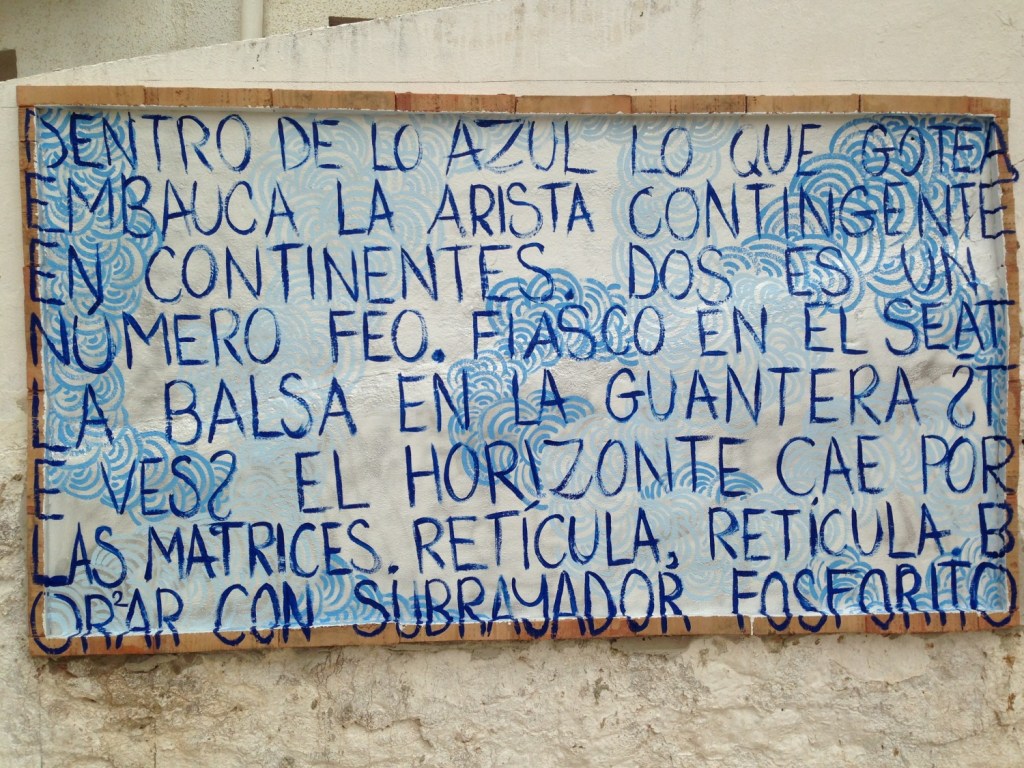 DENTRO DE LO AZUL LO QUE GOTEA
EMBAUCA LA ARISTA CONTINGENTE
EN CONTINENTES. DOS ES UN
NÚMERO FEO. FIASCO EN EL SEAT
LA BALSA EN LA GUANTERA ¿T
E VES? EL HORIZONTE CAE POR
LAS MATRICES. RETÍCULA, RETÍCULA. B
OR²AR CON SUBRAYADOR FOSFORITO